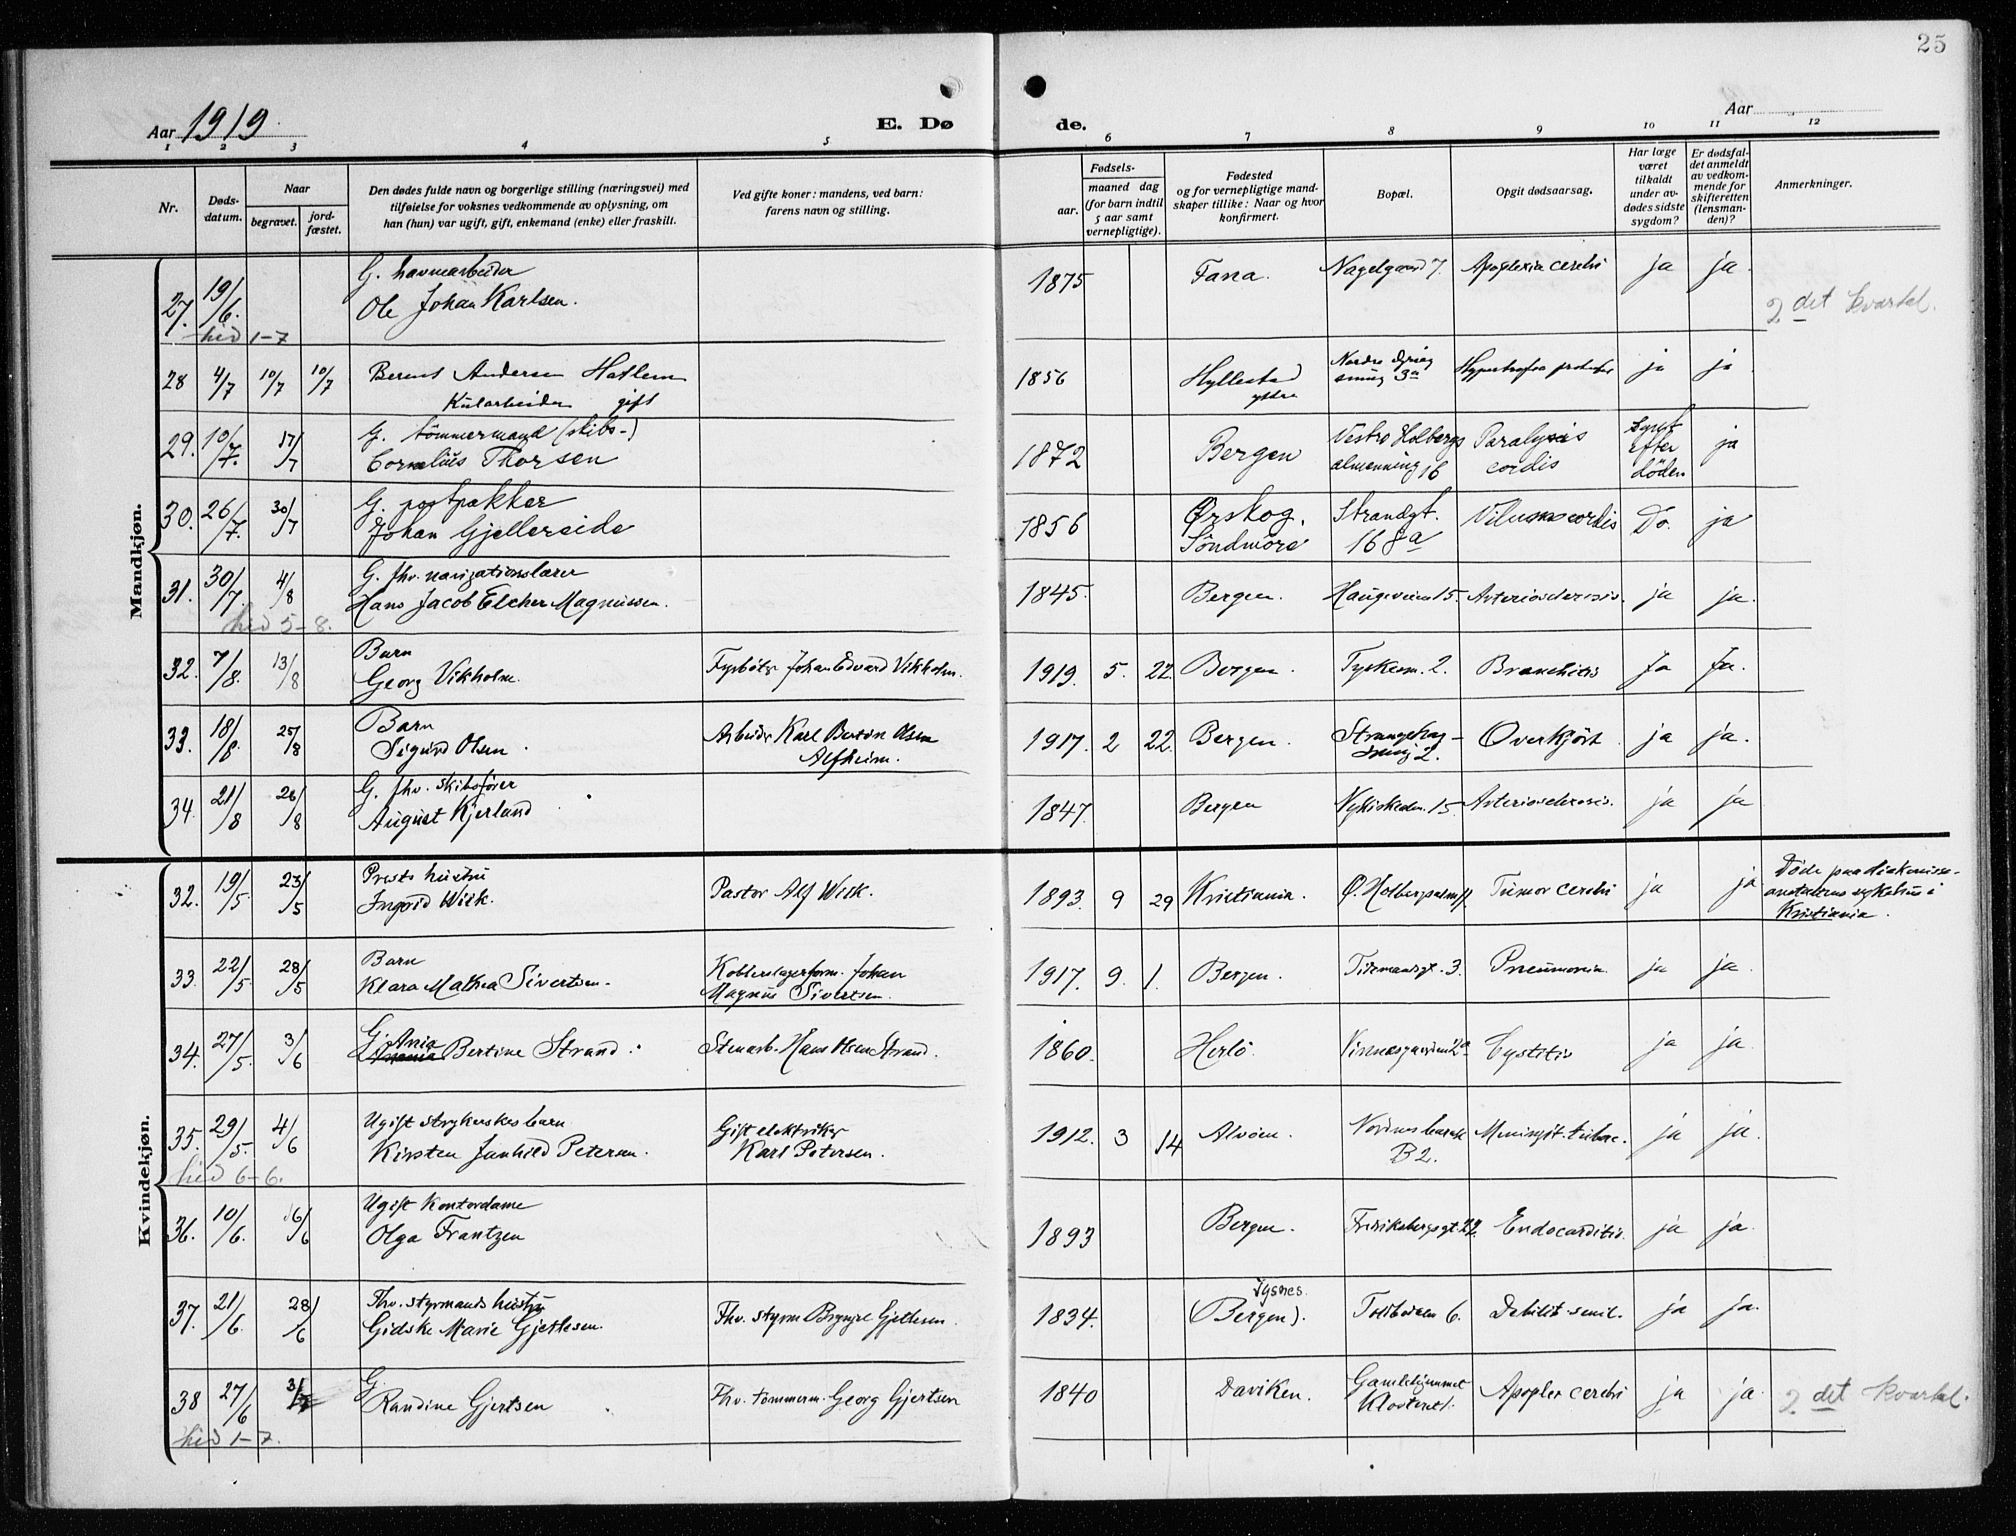 25
Aar 1919
E. Dø de.
Aar
1 2 3 4 5 6 7 8 9 10 11 12
Nr.
Døds-
datum.
Naar
begravet.
jord-
fæstet.
Den dødes fulde navn og borgerlige stilling (næringsvei) med
tilføielse for voksnes vedkommende av oplysning, om
han (hun) var ugift, gift, enkemand (enke) eller fraskilt.
Ved gifte koner: mandens, ved barn:
farens navn og stilling.
Fødsels-
aar.
maaned dag
(for barn indtil
5 aar samt
vernepligtige).
Fødested
og for vernepligtige mand-
skaper tillike: Naar og hvor
konfirmert.
Bopæl.
Opgit dødsaarsag.
Har læge
været
tilkaldt
under av-
dødes sidste
sygdom?
Er dødsfal-
det anmeldt
av vedkom-
mende for
skifteretten
(lensman-
den)?
Anmerkninger.
Mandkjøn.
27. 19/6. G. havnearbeider
Ole Johan Karlsen. 1875 Fana. Nagelgaard 7. Apoplexia cerebri ja ja.
hid 1-7
2det kvartal.
28 4/7 10/7 10/7 Berent Andersen Hatlem
Kularbeider gift 1856 Hyllestad
ytre
3a ja ja
29. 10/7. 17/7 G. tømmermand (skibs-)
Cornelius Thorsen 1872 Bergen Vestre Holbergs
almenning 16 Paralysis
cordis Synt
efter
døden ja
30. 26/7. 30/7 G. postpakker
Johan Gjellerside 1856 Ørskog.
Søndmøre Strandgt.
168a cordis Do. ja
31. 30/7 4/8 G. fhv. navigationslærer
Hans Jacob Elcher Magnussen. 1845. Bergen. Haugeveien 15. Arteriosclerosis. ja ja.
hid 5-8.
32. 7/8. 13/8 Barn
Georg Vikholm. Fyrbøter Johan Edvard Vikholm. 1919. 5. 22. Bergen. Tyskesm. 2. Bronchitis Ja Ja.
33. 18/8. 25/8 Barn
Sigurd Olsen. Arbeider Karl Olsen
Alfheim. 1917. 2 22. Bergen. 2. Overkjørt ja ja.
34. 21/8 26/8 G. fhv. skibsfører
August Kjerland 1847. Bergen 15. Arteriosclerosis. ja ja
Kvindekjøn.
32. 19/5. 23/5 Prests hustru
Ingrid Wisk. Pastor Alf Wisk. 1893. 9 29 Kristiania. Ø. Holbergsalm 11. Tumor cerebri ja ja Døde paa diakonisse-
anstaltens sykehus i
Kristiania.
33. 22/5. 28/5 Barn
Klara Mathea Sivertsen. Kobberslagerform. Johan
Magnus Sivertsen. 1917. 9. 1. Bergen. Tidemandsgt. 3. Pneumonia. ja ja.
34. 27/5. 3/6 G. Ania
Bertine Strand. Stenarb. Hans Olsen Strand. 1860. Herlø. Cystitis ja ja.
35. 29/5. 4/6 Ugift strykerskes barn
Kirsten Junhild Petersen. Gift elektriker
Karl Petersen. 1912. 3 14 Alvøen.
B2. ja ja.
hid 6-6.
36. 10/6. 16/6 Ugift Kontordame
Olga Frantzen 1893 Bergen. Fredriksbergsgt. 22. Endocarditis. ja ja.
37. 21/6. 28/6 Fhv. styrmands hustru
Gidske Marie Gjertsen. Fhv. styrm Gjertsen. 1834. Tysnes.
(Bergen). Toldboden 6. Debilit. senil. ja ja.
38 27/6 3/7 G.
Randine Gjertsen Fhv. tømmerm. Georg Gjertsen 1840 Daviken. Gamlehjemmet
Klosteret. Apoplex cerebri ja ja. 2det kvartal.
hid 1-7.